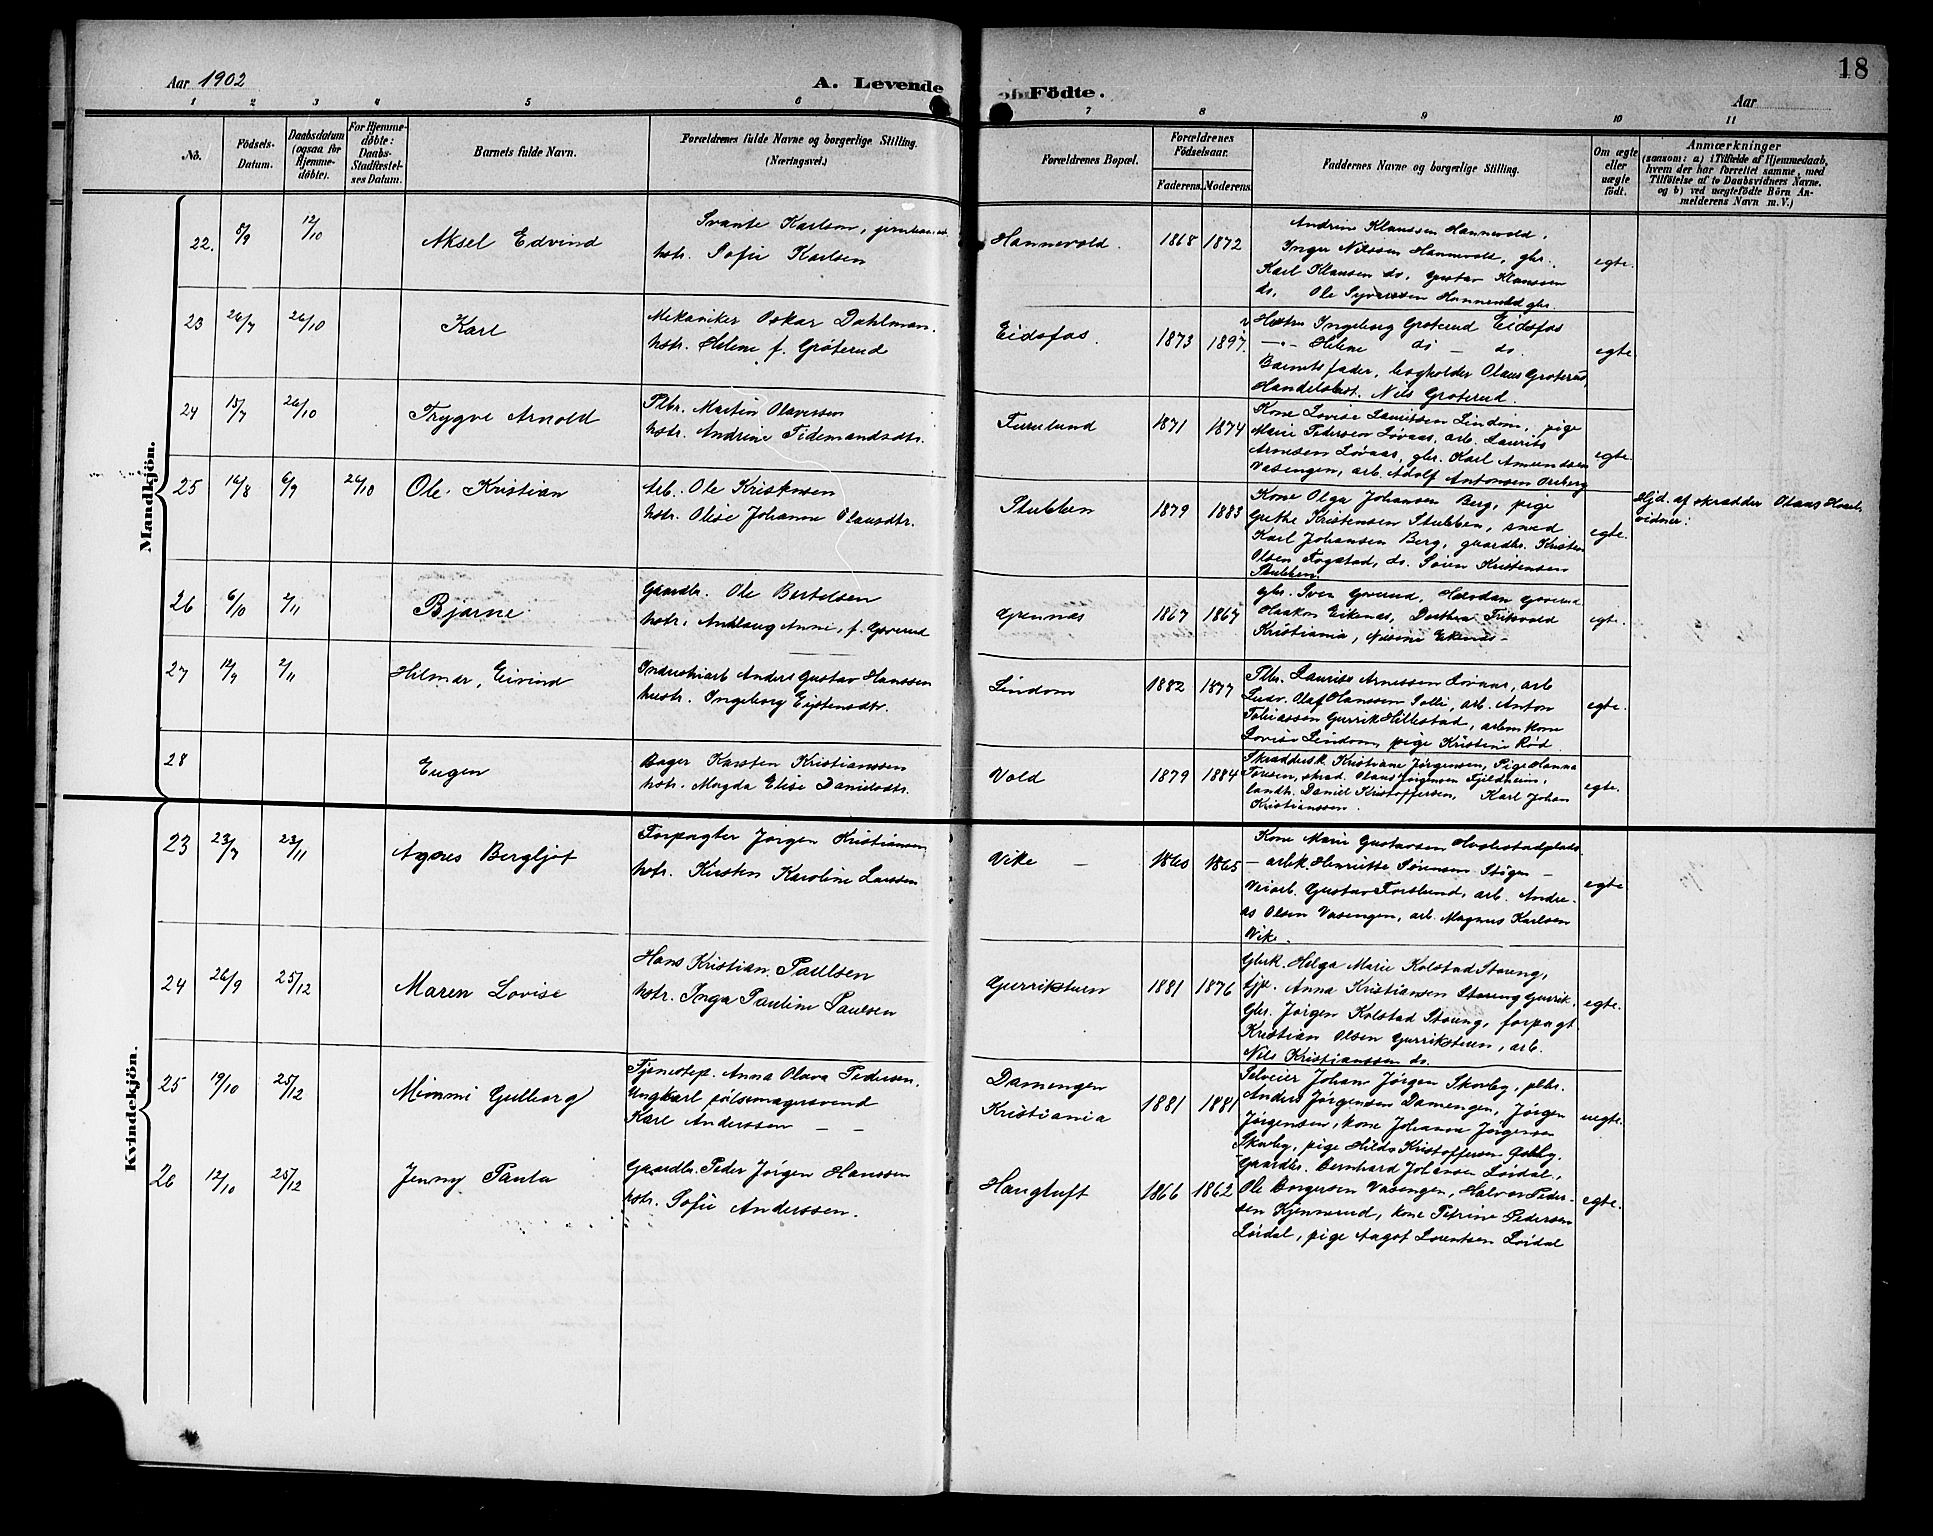 Aar 1902
A. Levende
Födte.
18
Aar
1 2 3 4 5 6 7 8 9 10 11
No.
Födsels-
Datum.
Daabsdatum
(ogsaa for
Hjemme-
døbte).
For Hjemme-
døbte:
Daabs-
Stadfæstel-
ses Datum.
Barnets fulde Navn.
Forældrenes fulde Navne og borgerlige Stilling.
(Næringsvei.)
Forældrenes Bopæl.
Forældrenes
Födselsaar.
Faderens. Moderens.
Faddernes Navne og borgerlige Stilling.
Om ægte
eller
uægte
födt.
Anmærkninger
(saasom: a) i Tilfælde af Hjemmedaab,
hvem der har forrettet samme, med
Tilföielse af to Daabsvidners Navne.
og b) ved uægtefödte Börn An-
melderens Navn m. V.)
Mandkjön.
22. 5/9 12/10 Aksel Edvind
Svante Karlson,
hstr. Sofie Karlsen
Hannevold. 1868 1872
Andrine Klaussen Hannevold,
Inger Nilssen Hannevold, gbr.
Karl Klausen ds. Gustav Klaussen
ds. Ole Syvertsen Hannevold gbr.
egte.
23 26/7 26/10 Karl
Mekaniker Oskar Dahlman.
hstr. Helene f. Gröterud
Eidsfos. 1873 1897.
Hstru Ingeborg Groterud Eidsfos
—"— Helene ds — ds.
Barnets fader, bogholder Olaus Groterud,
Handelsbest. Nils Groterud.
egte
24 15/7 26/10 Trygve Arnold
Plbr. Martin Olavessen
hstr. Andrine Tidemandsdtr.
Furulund 1871 1874
Kone Lovise Lauritsen Lindom, pige
Marie Pedersen Løvaas, arb. Laurits
Arnesen Løvaas, gbr. Karl Amundsen
Vasengen, arb. Adolf Antonsen
egte.
25 16/8 6/9 26/10 Ole Kristian
Arb. Ole Kristensen
hstr. Olise Johanne Olausdtr.
Stubben 1879 1883
Kone Olga Johansen Berg, pige
Grethe Kristensen Stubben, smed
Karl Johansen Berg, gaardbr. Kristen
Olsen Fogstad, ds. Søren Kristensen
Stubben.
egte.
Hjd. af skrædder Olaus
vidner:
26 6/10 2/11 Bjarne
Gaardbr. Ole Bertelsen
hstr. Andlaug Anne, f. Goverud
Grennes 1867 1867
gbr. Iver Goverud, Goverud
Haakon Eikenæs, Dorthea
Kristiania, Nilsine Ekenæs—
egte.
27 12/9 2/11 Hilmar, Eivind
Industriarb Anders Gustav Hanssen
hustr. Ingeborg
Lindom 1882 1877
Plbr. Laurits Arnessen Løvaas, arb
Ludv. Olaf Hanssen Solli, arb. Anton
Tobiassen Gurrik Hillestad, arbm kone
Lovise Lindom, pige Kristine Rød.
egte.
28 Eugen
Bager Karsten Kristianssen
hstr. Magda Elise Danielsdtr.
Vold 1879 1884
Skræddersk. Kristiane Jørgensen, Pige Hanna
Iversen, skræd. Olaus Jørgensen Fjeldheim,
landh. Daniel Kristoffersen, Karl Johan
Kristianssen.
egte.
Kvindekjön.
23 23/7 23/11 Agnes Bergljot
Forpagter Jørgen Kristiansen
hstr. Kirsten Karoline Larssen
Vike — 1860 1865
Kone Marie Gustavsen
— arbk. Henriette Sørensen Stögen —
Veiarb. Gustav Forslund, arb. Andre-
as Olsen Vasengen, arb. Magnus Karlsen
Vike.
egte
24 26/9 25/12 Maren Lovise
Hans Kristian Paulsen
hstr. Inga Pauline Paulsen
Gurrikstuen 1881 1876
Gbrk. Helga Marie Kolstad Støreng,
Gp. Anna Kristiansen Støreng Gurrik.
Gbr. Jørgen Kolstad Støreng, forpagt
Kristian Olsen Gurrikstuen, arb.
Nils Kristianssen ds.
egte.
25 19/10 25/12 Mimmi Gulborg
Tjenestep. Anna Olava Pedersen.
Ungkarl pølsemagersvend
Karl Anderssen — —
Damengen
Kristiania 1881 1881
Selveier Johan Jørgen Skovby, plbr.
Anders Jørgensen Damengen, Jørgen
Jørgensen, kone Johanne Jørgensen
Skovby, pige Hilda Kristoffersen
uegte.
26 12/10 25/12 Jenny Paula
Gaardbr. Peder Jørgen Hanssen
hstr. Sofie Anderssen.
Haugtuft 1866 1862
Gaardbr. Bernhard Johansen Løidal,
Ole Borgersen Vasengen, Halvor Peder-
sen Kjennerud, kone Petrine Pedersen
Loidal, pige Aagot Lorentsen Loidal
egte.